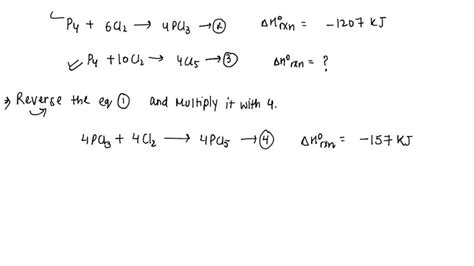 P4 + 6Cl2 → 4PCl3 → ② ΔH°rxn = -1207 KJ
P4 + 10Cl2 → 4Cl5 → ③ ΔH°rxn = ?
⇒ Reverse the eq ① and Multiply it with 4.
4PCl3 + 4Cl2 → 4PCl5 → ④ ΔH°rxn = -157 KJ